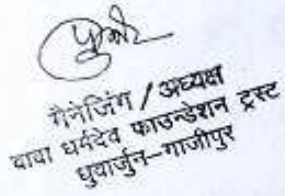 मैनेजिंग / अध्यक्ष
बाबा धर्मदेव फाउन्डेशन ट्रस्ट
धुवार्जुन–गाजीपुर